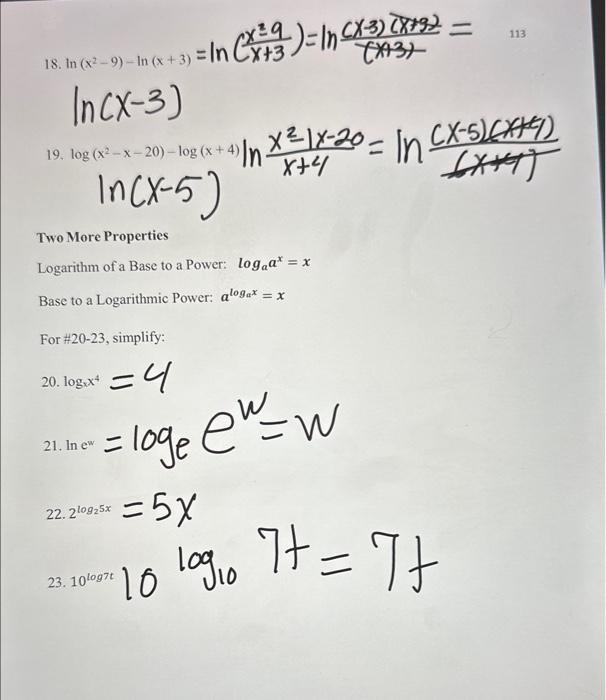 18. ln (x² – 9) – ln (x + 3) = ln (x²-9/x+3) = ln (x-3)(x+3)/(x+3) = 113
ln(x-3)
19. log (x² – x – 20) – log (x + 4) ln x²-1x-20/x+4 = ln (x-5)(x+4)/(x+4)
ln(x-5)
Two More Properties
Logarithm of a Base to a Power: logₐaˣ = x
Base to a Logarithmic Power: a^logₐx = x
For #20-23, simplify:
20. logₓx⁴ = 4
21. ln eʷ = logₑ eʷ = w
22. 2^log₂5x = 5x
23. 10^log7t 10^log₁₀ 7t = 7t